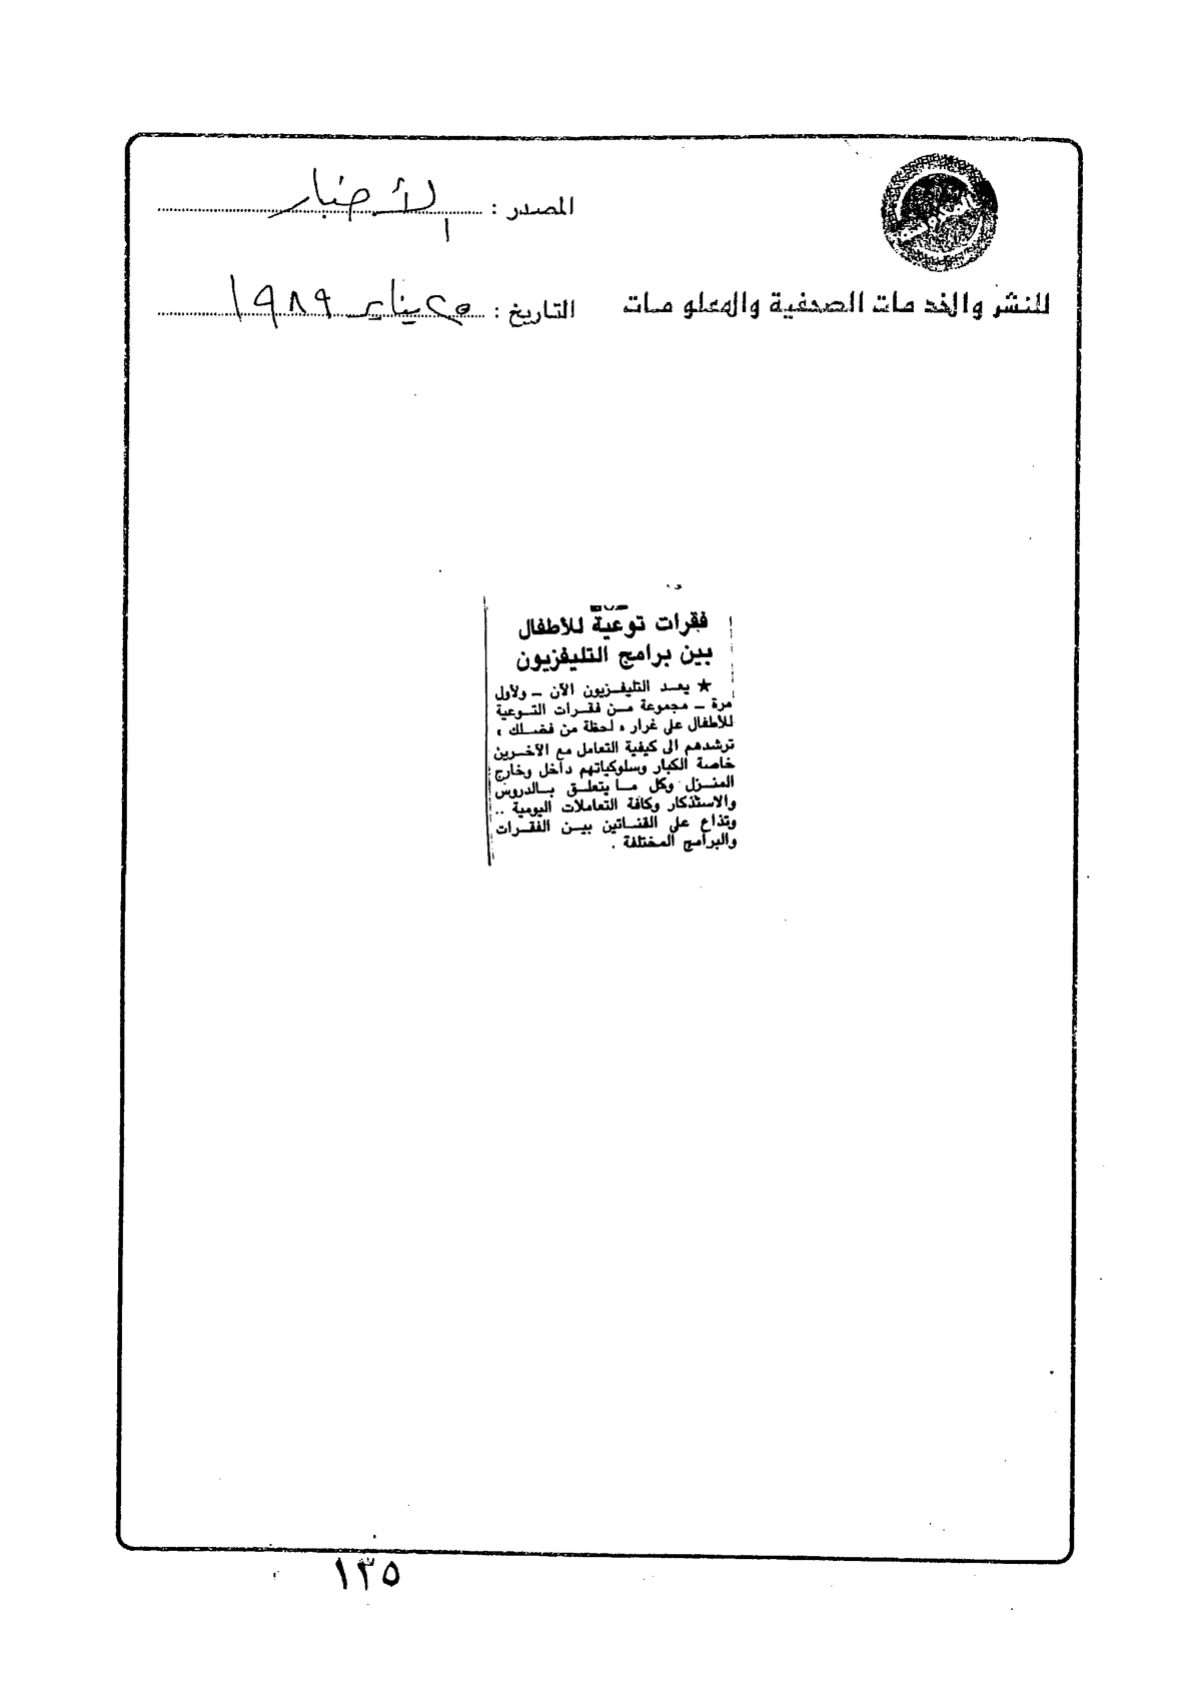 المصدر : الأخبار
للنشر والخدمات الصحفية والمعلومات
التاريخ : ٢٥ يناير ١٩٨٩
فقرات توعية للأطفال
بين برامج التليفزيون
★ يعد التليفزيون الآن ــ ولأول
مرة ــ مجموعة من فقرات التوعية
للأطفال على غرار « لحظة من فضلك »
ترشدهم الى كيفية التعامل مع الآخرين
خاصة الكبار وسلوكياتهم داخل وخارج
المنزل وكل ما يتعلق بالدروس
والاستذكار وكافة التعاملات اليومية ..
وتذاع على القناتين بين الفقرات
والبرامج المختلفة .
١٣٥